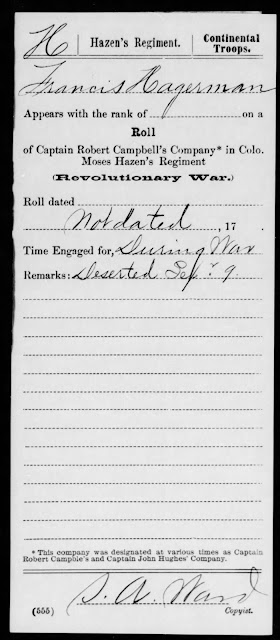 H | Hazen's Regiment. | Continental Troops.
Francis Hagerman
Appears with the rank of on a
Roll
of Captain Robert Campbell's Company* in Colo.
Moses Hazen's Regiment
(Revolutionary War.)
Roll dated
Not dated, 17 .
Time Engaged for, During War
Remarks: Deserted Sepr 9
* This company was designated at various times as Captain
Robert Campble's and Captain John Hughes' Company.
S. A. Ward
(555) Copyist.